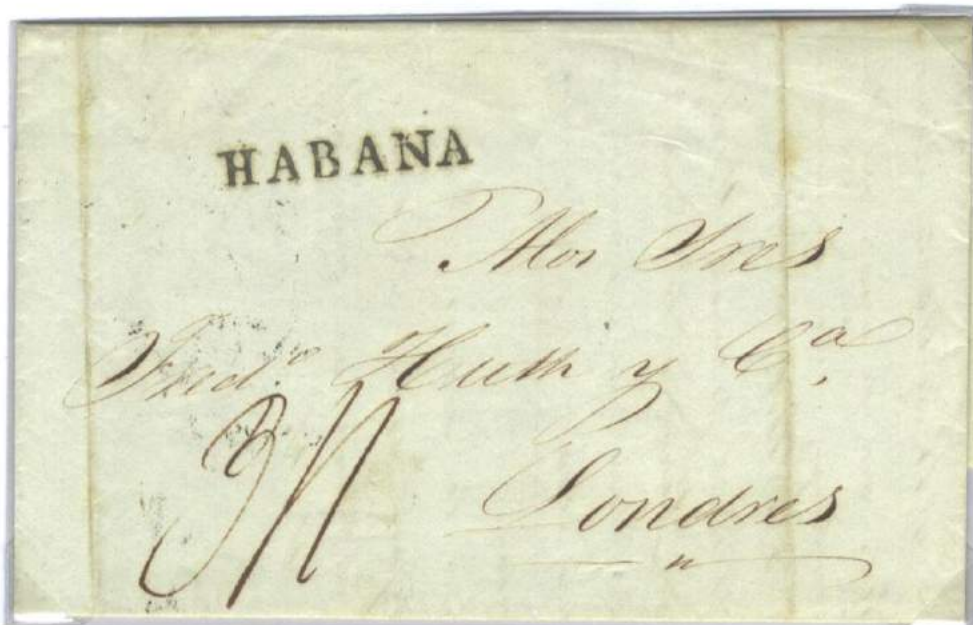 HABANA
A los Sres
Fred.º Huth y C.ª
Londres